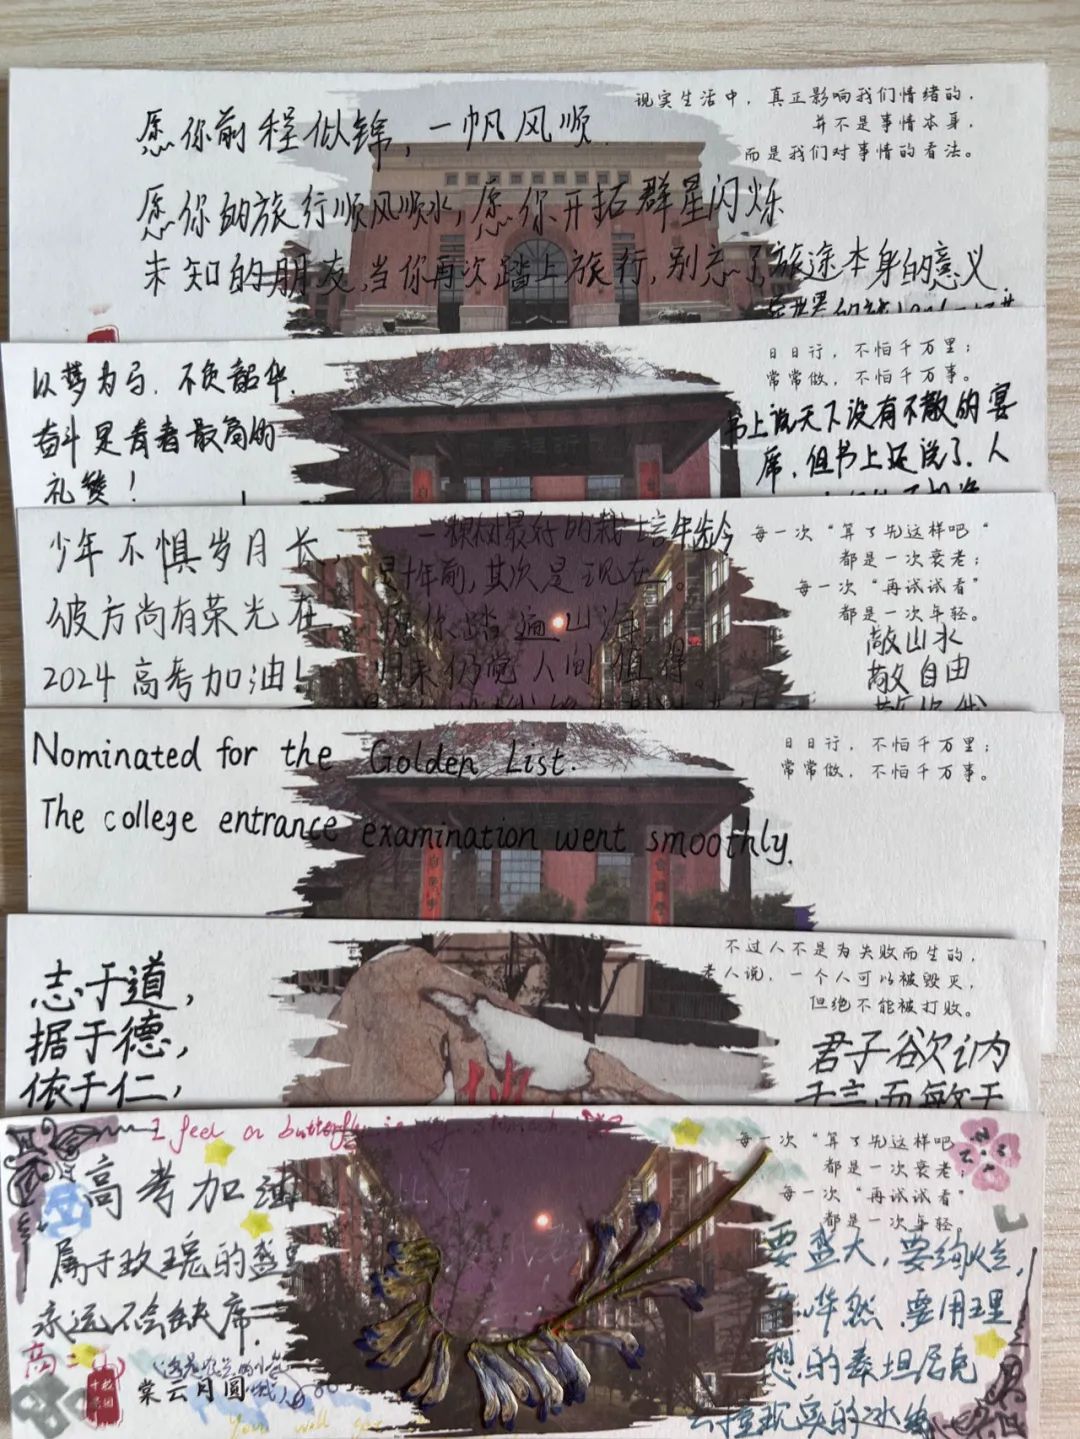 现实生活中，真正影响我们情绪的，
并不是事情本身，
而是我们对事情的看法。
愿你前程似锦，一帆风顺.
愿你的旅行顺风顺水，愿你开拓群星闪烁
未知的朋友，当你再次踏上旅行，别忘了旅途本身的意义.
日日行，不怕千万里；
常常做，不怕千万事。
以梦为马.不负韶华.
奋斗是青春最高的
礼赞！
书上说天下没有不散的宴
席.但书上还说了.人
每一次“算了先这样吧“
都是一次衰老；
每一次“再试试看”
都是一次年轻。
少年不惧岁月长，
彼方尚有荣光在
2024高考加油！
一棵树最好的栽培
是十年前，其次是现在。
愿你踏遍山海，
归来仍觉人间值得
敬山水
敬自由
日日行，不怕千万里；
常常做，不怕千万事。
Nominated for the Golden List.
The college entrance examination went smoothly.
不过人不是为失败而生的，
老人说，一个人可以被毁灭，
但绝不能被打败。
志于道，
据于德，
依于仁，
君子欲讷
于言而敏于
I feel a butterfly in my stomach
每一次“算了先这样吧
都是一次衰老；
每一次“再试试看”
都是一次年轻。
高考加油
属于玫瑰的盛
永远不会缺席.
高二
棠云月圆
要盛大，要绚烂，
要哗然 要用理
想的泰坦尼克
去撞现实的冰
You will get